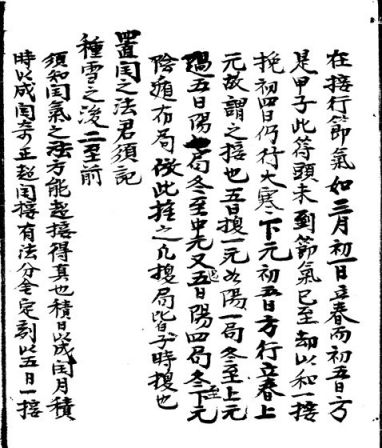 在接行節氣如二月初一日立春而初五日方
是甲子此符頭未到節氣已至却以和一接
挽初四日仍行大寒下元初五日方行立春上
元故謂之接也五日換一元如陽一局冬至上元
過五日陽局冬至中元又五日陽四局冬下元
陰遁布局倣此推之凡換局皆子時換也
置閏之法君須記
種雪之後二至前
須知閏氣之法方能超接得真也積日以成閏月積
時以成閏奇正超閏接有法分金定刻以五日一接